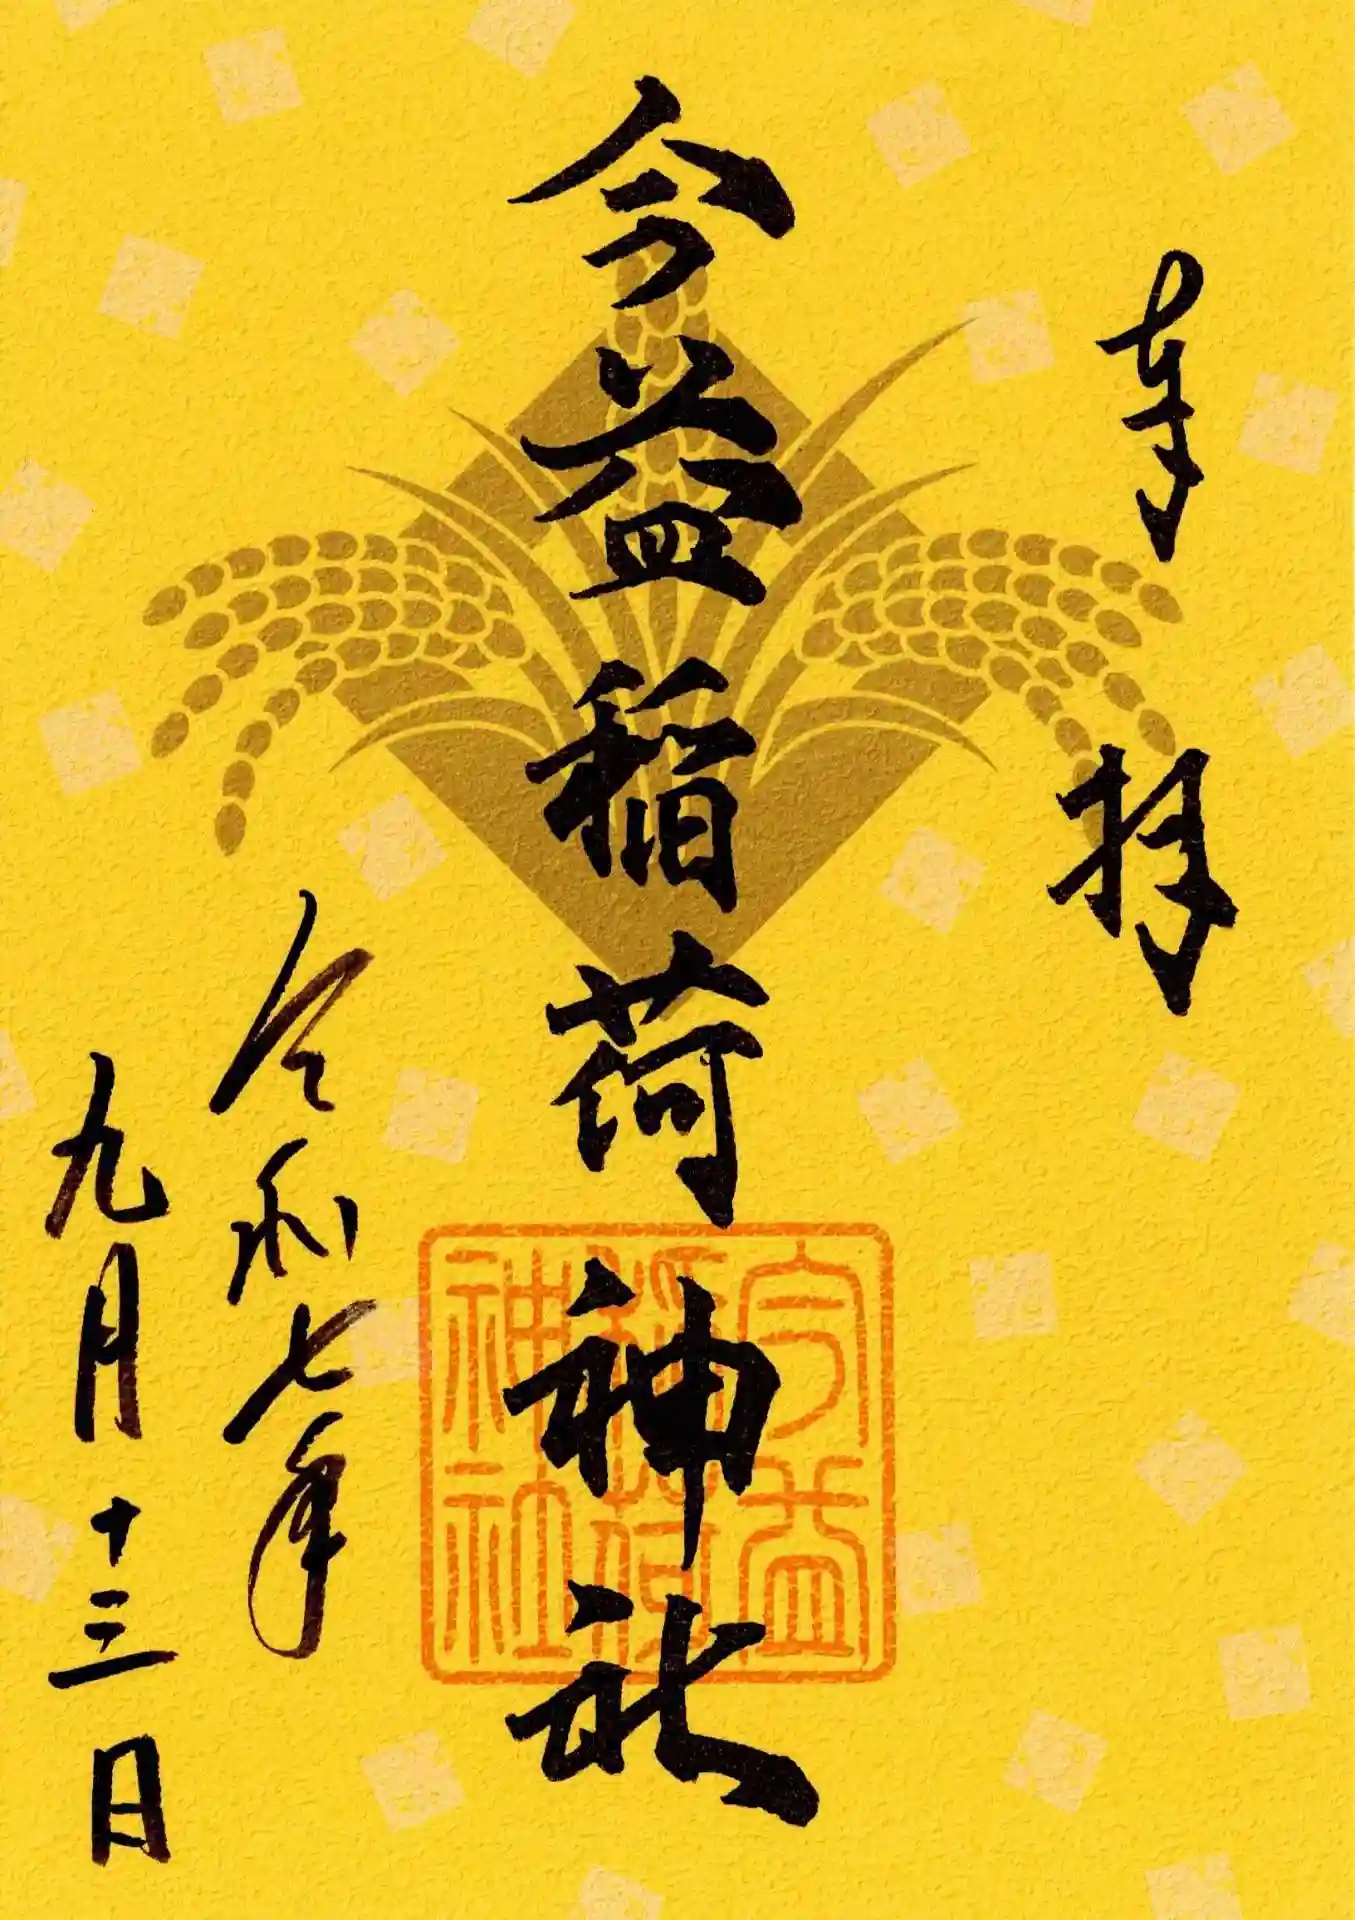 奉拝
今益稲荷神社
今益
稲荷
神社
令和七年
九月十三日